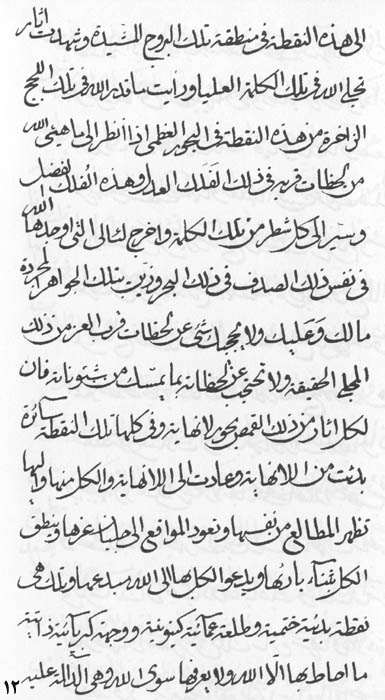 الى هذه النقطة فى منطقة تلك البروج المشيدة وشهدت اثار
تجلى الله فى تلك الكلمة العليا ورايت ما قدر الله فى تلك اللجج
الزاخرة من هذه النقطة فى البحور العظمى اذا انظر الى ما هيئ الله
من لحظات قربه فى ذلك الفلك العدل وهذه الفلك الفضل
وسير الى كل شطر من تلك الكلمة واخرج لئالى التى اوجدها الله
فى نفس ذلك الصدف فى ذلك البحر وزين بتلك الجواهر المجردة
مالك وعليك ولا يحجبك شئ عن لحظات قرب العز من ذلك
المجلى الحقيقة ولا تحتجب عن لحظاته بما يمسك من شئوناته فان
لكل اثار من ذلك القمص بحور لا نهاية وفى كلها تلك النقطة سائرة
بدئت من اللانهاية وعادت الى اللانهاية والكل منها واليها
تظهر المطالع من نفسها وتعود المواقع الى وينطق
الكل بثناء بارئها ويدعو الكل بها الى الله وتلك هى
نقطة بدئية ختمية وطلعة عمائية كينونية ووجهة كبريائية ذاتية
ما احاط بها الا الله ولا يعرفها سوى الله وهى الدالة عليه
١٢